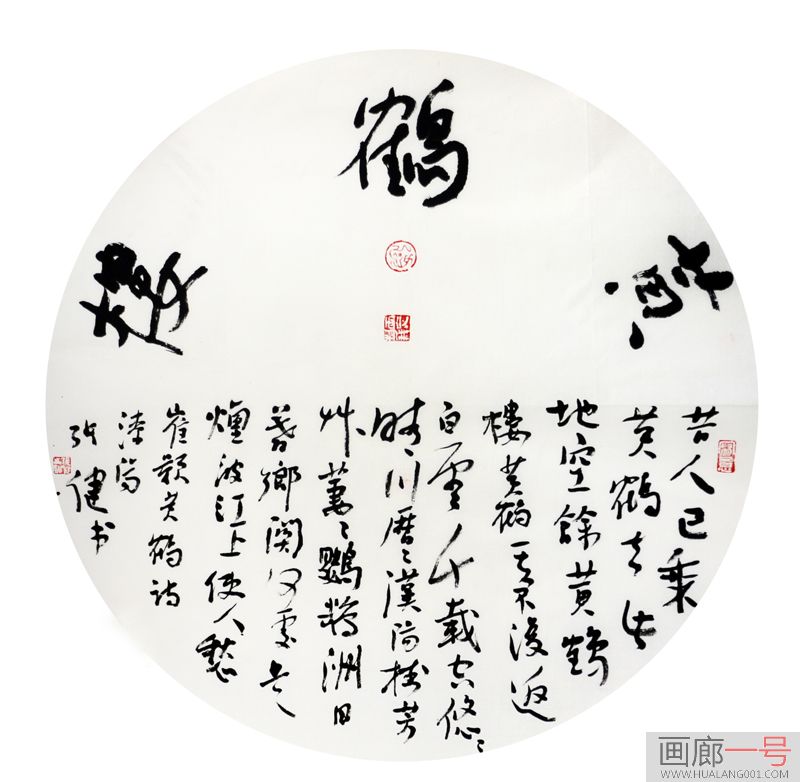 黄鶴樓
昔人已乘
黄鶴去此
地空餘黄鶴
樓黄鶴一去不復返
白雲千載空悠〻
晴川歷〻漢陽樹芳
艸萋〻鸚鵡洲日
暮鄉關何處是
煙波江上使人愁
崔顥黄鶴詩
健书
画廊一号
WWW.HUALANG001.COM